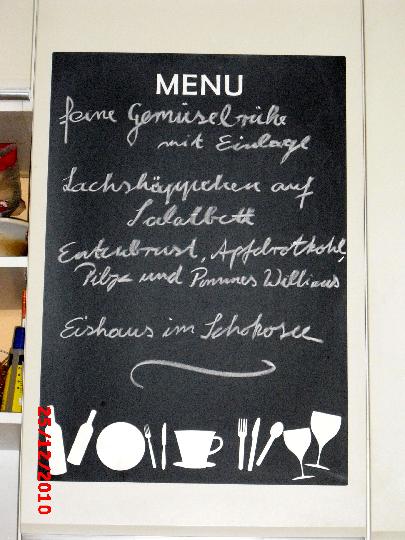 MENU
feine Gemüsebrühe
mit Einlage
Lachshäppchen auf
Salatbett
Entenbrust, Apfelrotkohl,
Pilze und Pommes Williams
Eishaus im Schokosee
25/12/2010